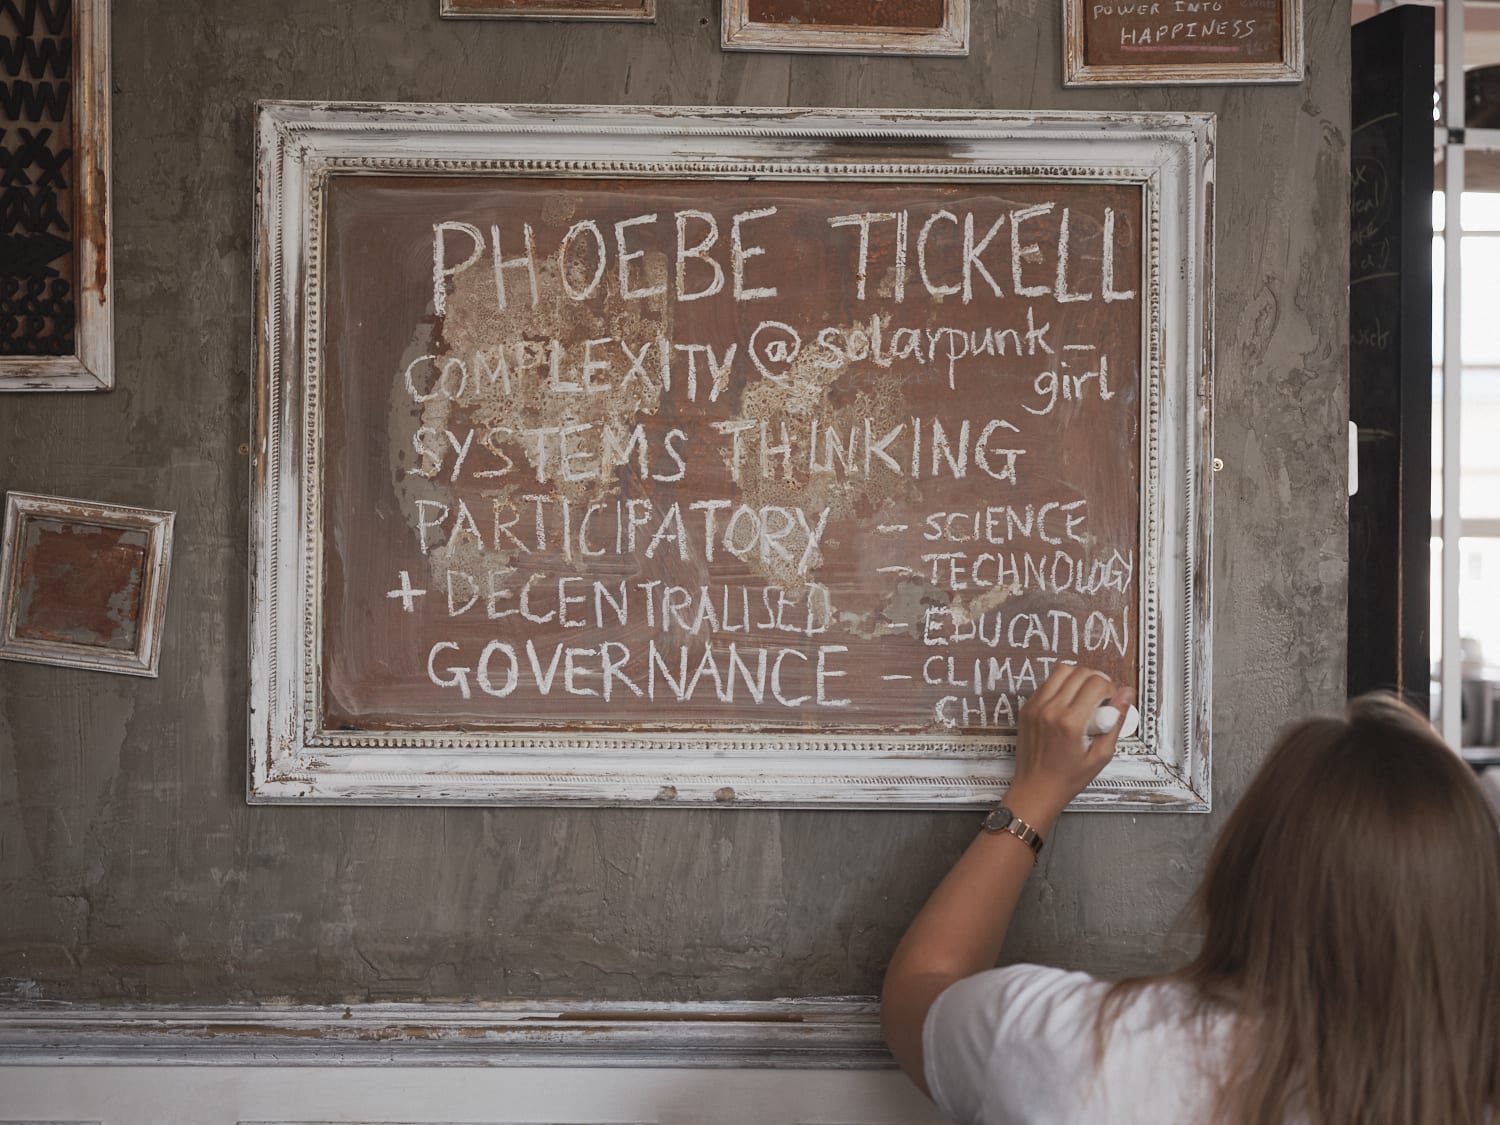 POWER INTO
HAPPINESS
PHOEBE TICKELL
COMPLEXITY @solarpunk_
girl
SYSTEMS THINKING
PARTICIPATORY
+ DECENTRALISED
GOVERNANCE
- SCIENCE
- TECHNOLOGY
- EDUCATION
- CLIMATE
CHA